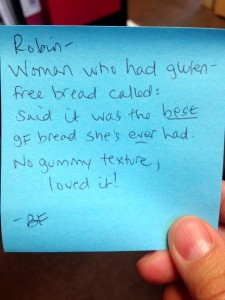 Robin-
Woman who had gluten-
free bread called:
said it was the best
gf bread she's ever had.
No gummy texture,
loved it!
-BF